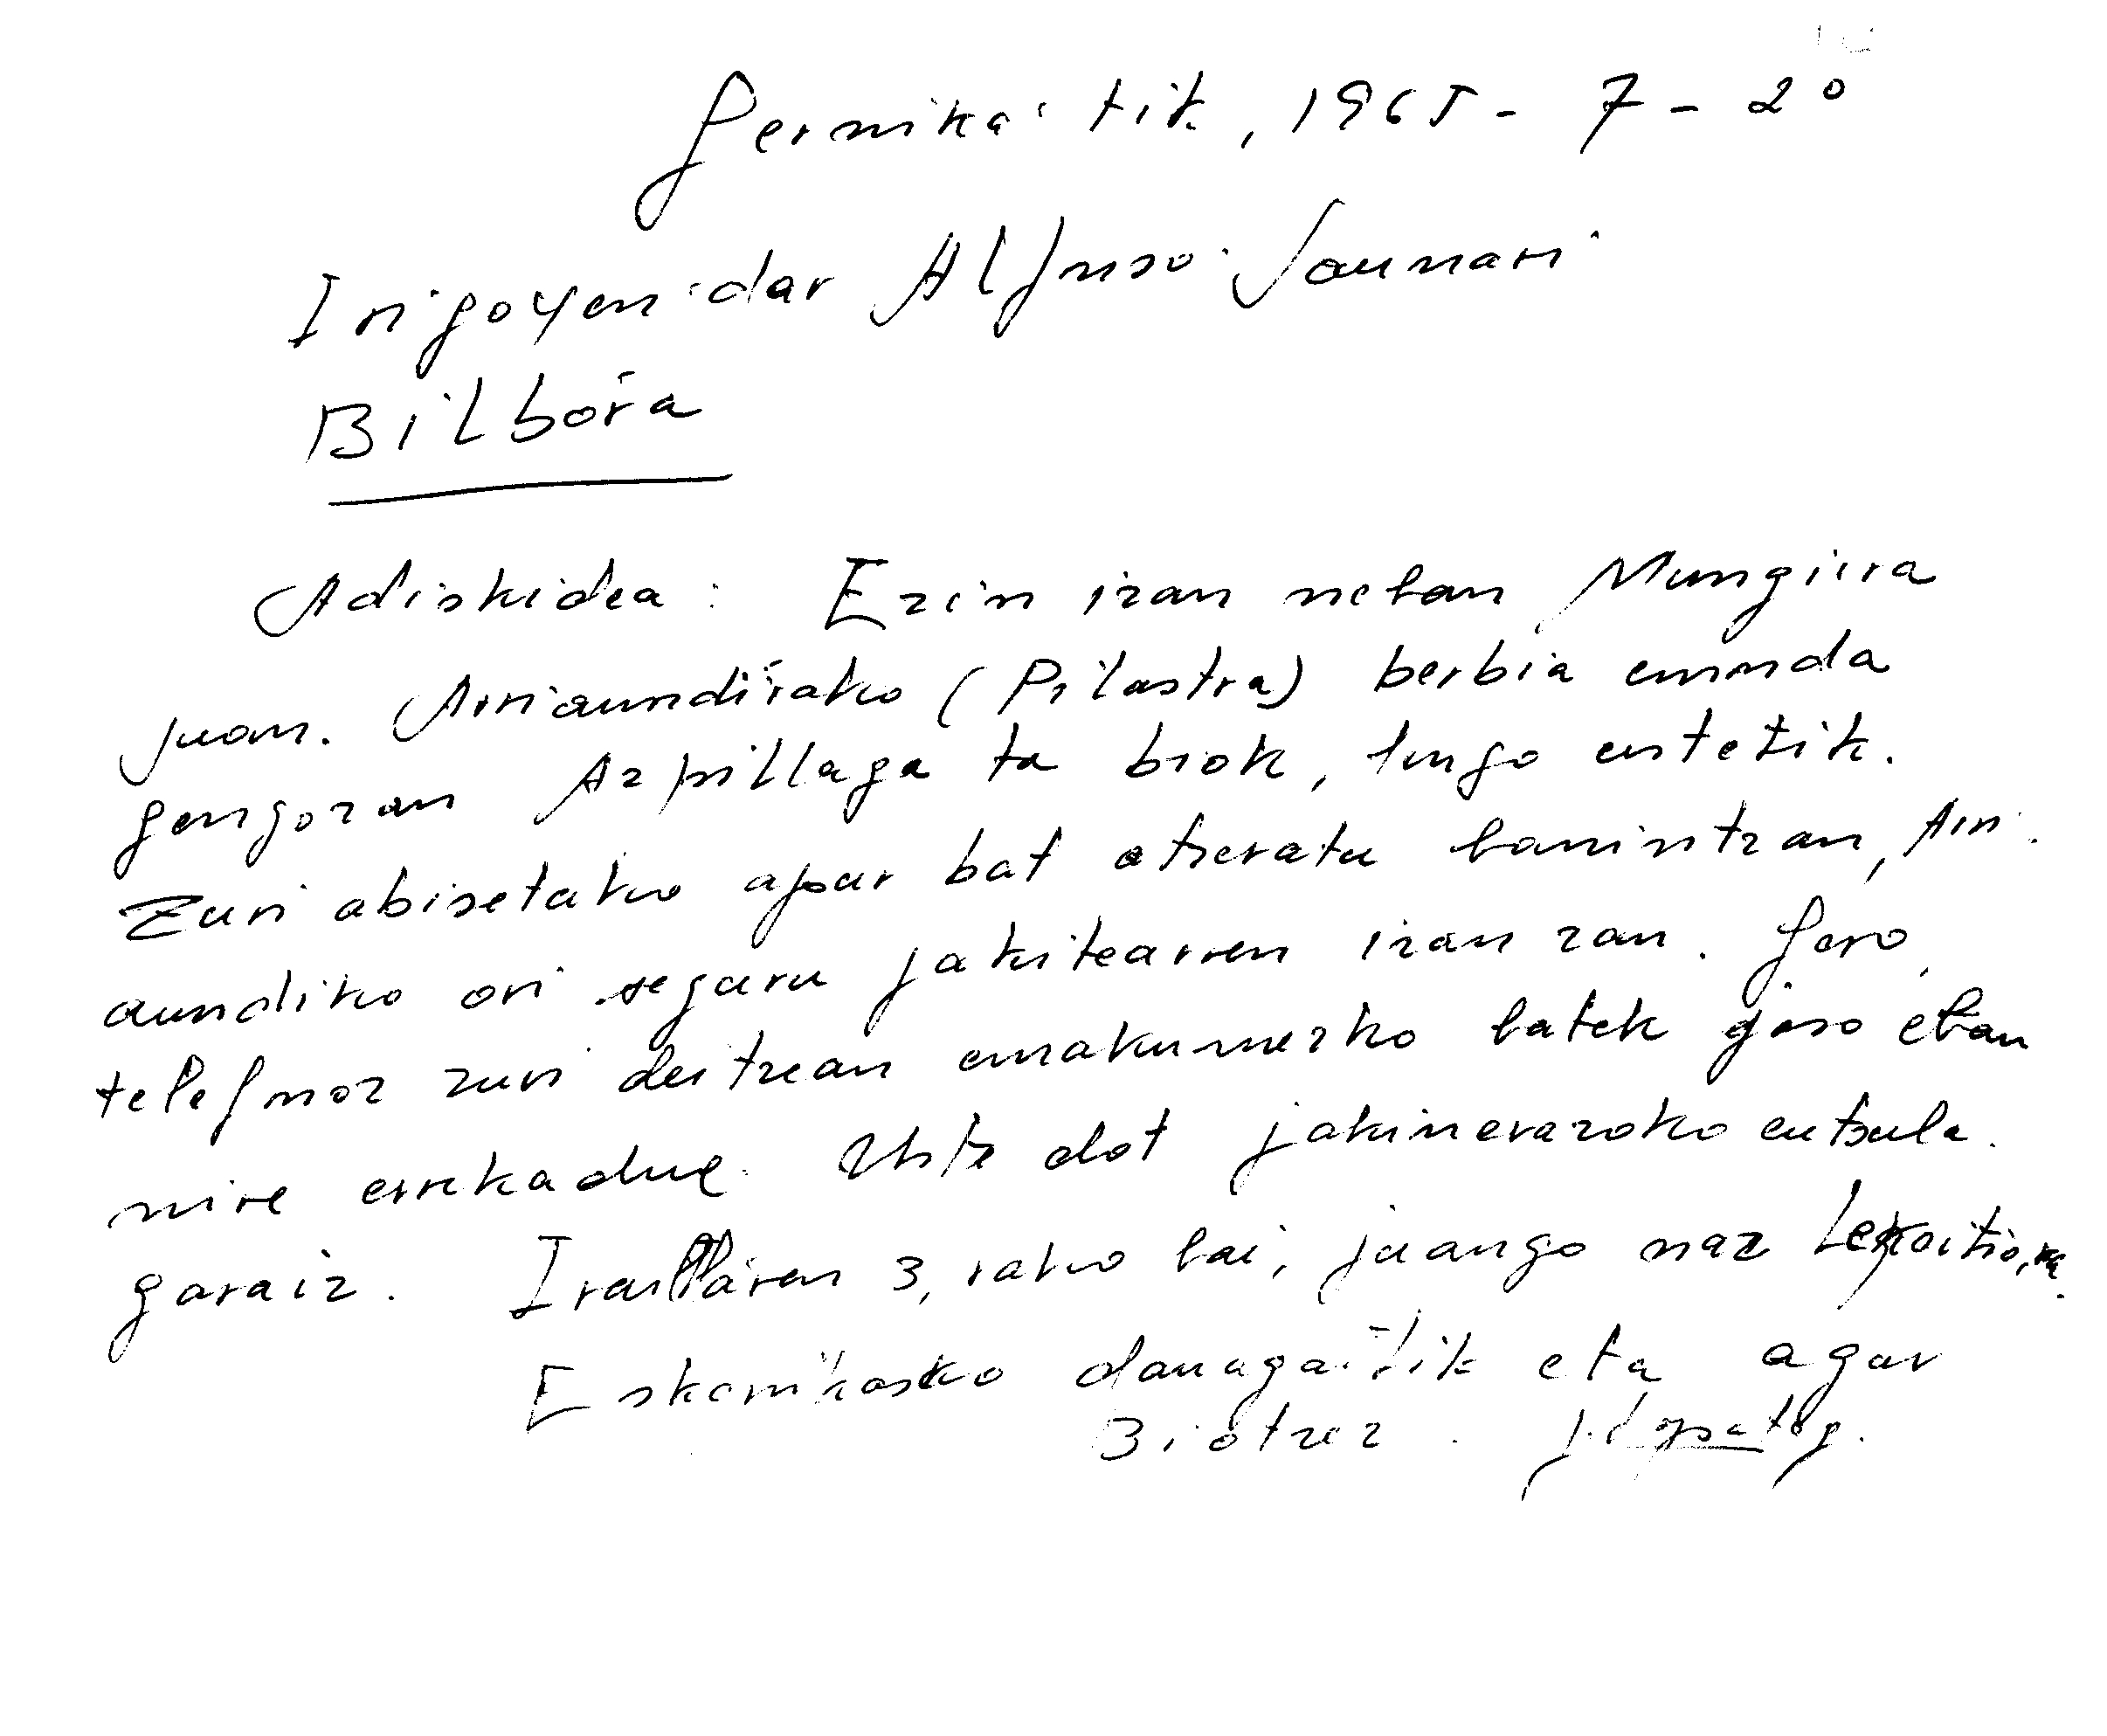 Gernika'tik, 1965 - 7 - 20
Irigoyen'dar Alfonso Jaunari
Bilbo'ra
Adiskidea: Ezin izan neban Mungira
juan. Arriaundi'rako (Pilastra) berbia emonda
gengozan Azpillaga ta biok, lengo urtetik.
Zuri abisetako apur bat atzeratu banintzan, Arri-
aundiko ori seguru jakitearren izan zan. Gero,
telefonoz zuri deitzean emakumezko batek jaso eban
nire errekadue. Uste dot jakinerazoko eutsula
garaiz. Iraillaren 3, rako bai, juango naz Lekeitio,ra.
Eskerrikasko danagaitik eta agur
Biotzez.